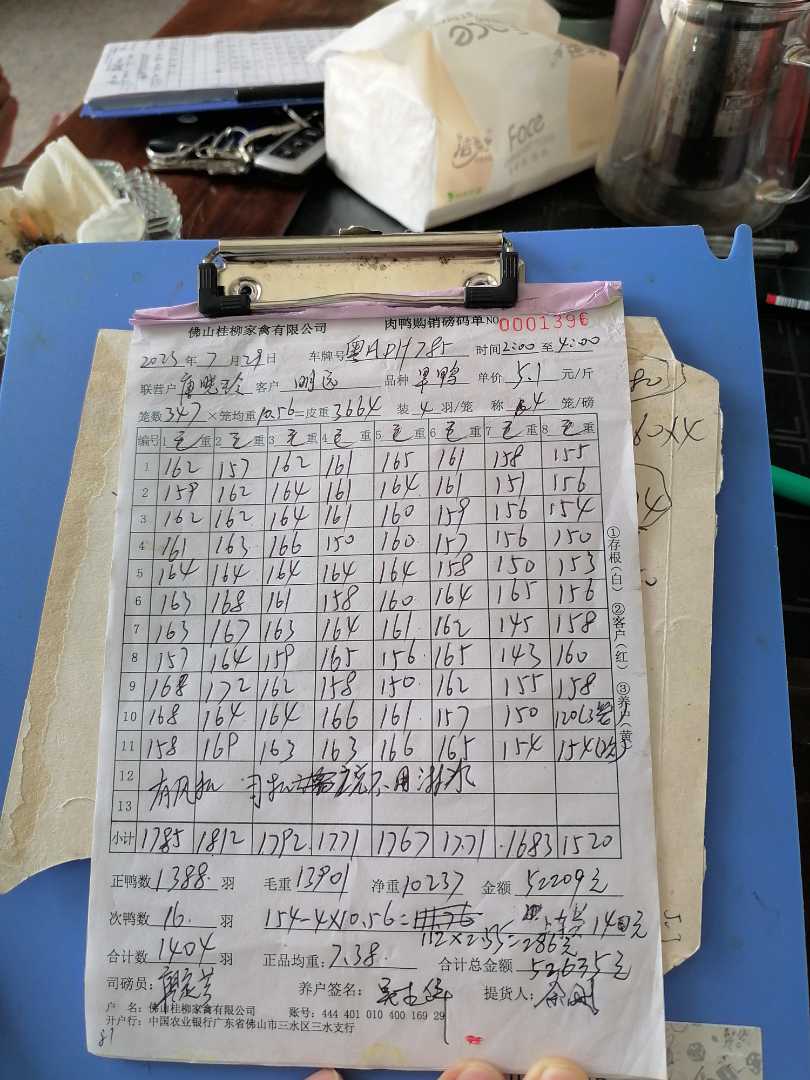 Face
佛山桂柳家禽有限公司 肉鸭购销磅码单 NO 0001396
2025 年 7 月 29 日 车牌号 粤ADH785 时间 2:00 至 4:00
联营户 唐晓玲 客户 明远 品种 单价 5.1 元/斤
笼数 347 ×笼均重 10.56 =皮重 3664 装 4 羽/笼 称 4 笼/磅
编号 1 毛 重 2 毛 重 3 毛 重 4 毛 重 5 毛 重 6 毛 重 7 毛 重 8 毛 重
1 162 157 162 161 165 161 158 155
2 159 162 164 161 164 161 151 156
3 162 162 164 161 160 159 156 154
4 161 163 166 150 160 157 156 150
5 164 164 164 164 164 158 150 153
6 163 168 161 158 160 164 165 156
7 163 167 163 164 161 162 145 158
8 157 164 159 165 156 165 143 160
9 168 172 162 158 150 162 155 158
10 168 164 164 166 161 157 150 120(3笼)
11 158 169 163 163 166 165 154 154(次)
12 有风机 司机 不用淋水
13
小计 1785 1812 1792 1771 1767 1771 1683 1520
正鸭数 1388 羽 毛重 13901 净重 10237 金额 52209元
次鸭数 16 羽 154-4×10.56= 140元
112×2.55=286元
合计数 1404 羽 正品均重: 7.38 合计总金额 52635元
司磅员: 养户签名: 提货人:
户 名: 佛山桂柳家禽有限公司 账号: 444 401 010 400 169 29
开户行: 中国农业银行广东省佛山市三水区三水支行
①存根(白) ②客户(红) ③养户(黄)